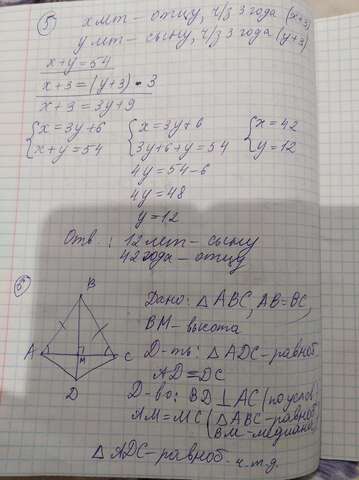 5) x лет – отцу, ч/з 3 года (x+3)
y лет – сыну, ч/з 3 года (y+3)
x+y=54
x+3=(y+3)•3
x+3=3y+9
{x=3y+6 {x=3y+6 {x=42
x+y=54 3y+6+y=54 y=12
4y=54-6
4y=48
y=12
Отв: 12 лет – сыну
42 года – отцу
6)
B
A
M
C
D
Дано: △ABC, AB=BC,
BM – высота
Д-ть: △ADC – равноб.
AD=DC
Д-во: BD⊥AC (по услов.)
AM=MC (△ABC – равноб.
BM – медиана)
△ADC – равноб. ч.т.д.